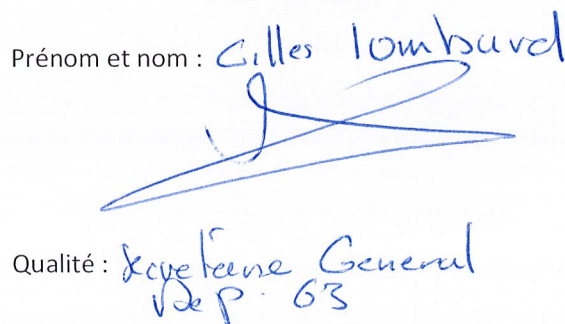 Prénom et nom : Gilles Lombard
Qualité : Secretaire General
Dep. 63